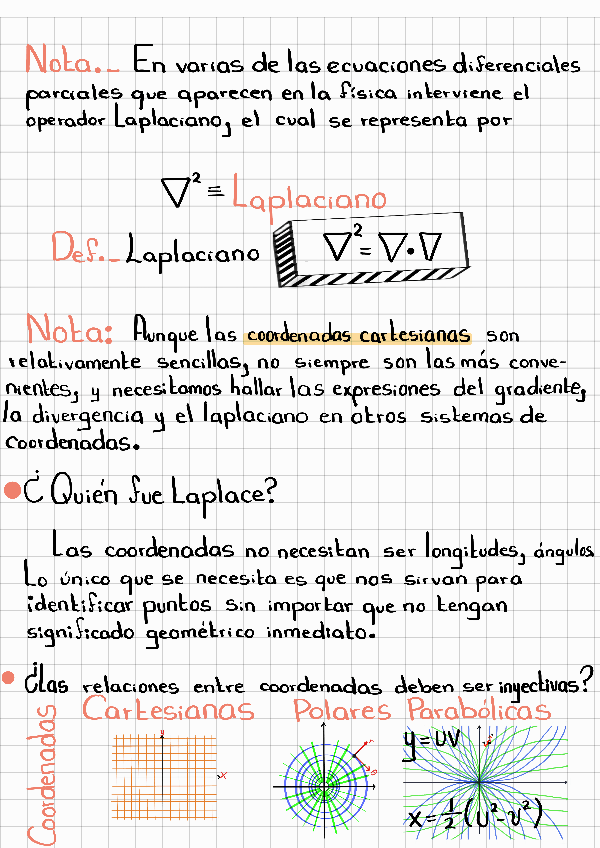 Nota.- En varias de las ecuaciones diferenciales
parciales que aparecen en la física interviene el
operador Laplaciano, el cual se representa por
∇² ≡ Laplaciano
Def.- Laplaciano ∇² = ∇•∇
Nota: Aunque las coordenadas cartesianas son
relativamente sencillas, no siempre son las más conve-
nientes, y necesitamos hallar las expresiones del gradiente,
la divergencia y el laplaciano en otros sistemas de
coordenadas.
¿Quién fue Laplace?
Las coordenadas no necesitan ser longitudes, ángulos.
Lo único que se necesita es que nos sirvan para
identificar puntos sin importar que no tengan
significado geométrico inmediato.
¿Las relaciones entre coordenadas deben ser inyectivas?
Coordenadas
Cartesianas Polares Parabólicas
y
x
r
θ
y=uv
x=½(u²-v²)